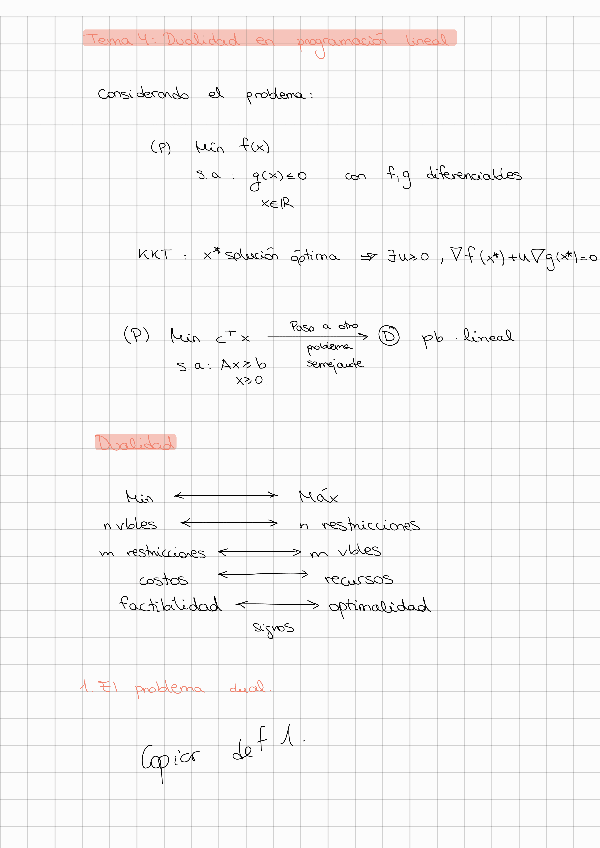 Tema 4: Dualidad en programación lineal
Considerando el problema:
(P) Min f(x)
s.a. g(x) ≤ 0 con f, g diferenciables
x ∈ ℝ
KKT: x* solución óptima ⇒ ∃u ≥ 0, ∇f(x*)+u∇g(x*)=0
(P) Min cᵀx Paso a otro problema semejante → (D) pb. lineal
s.a: Ax ≥ b
x ≥ 0
Dualidad
Min ↔ Máx
n vbles ↔ n restricciones
m restricciones ↔ m vbles
costos ↔ recursos
factibilidad ↔ optimalidad
signos
1. El problema dual.
Copiar def 1.